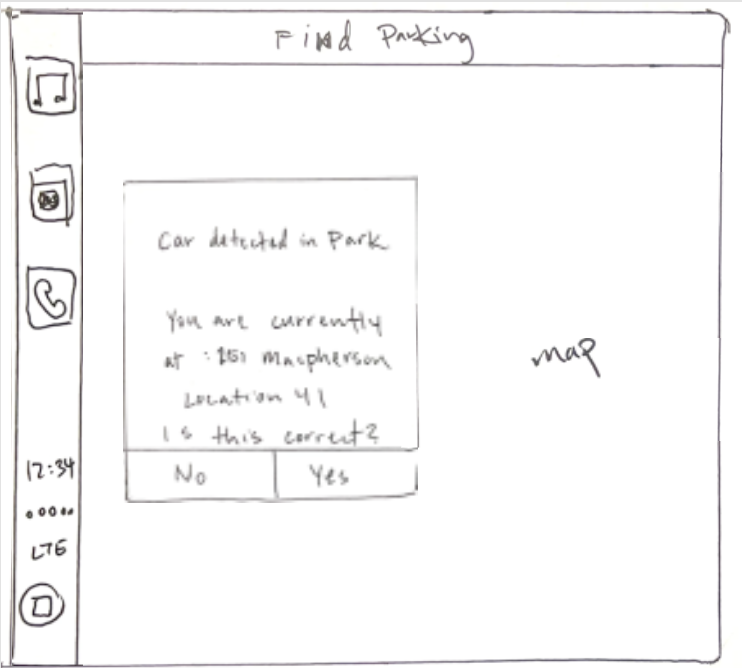 Find Parking
Car detected in Park
You are currently
at : 251 Macpherson
Location 41
Is this correct?
No Yes
map
12:34
LTE